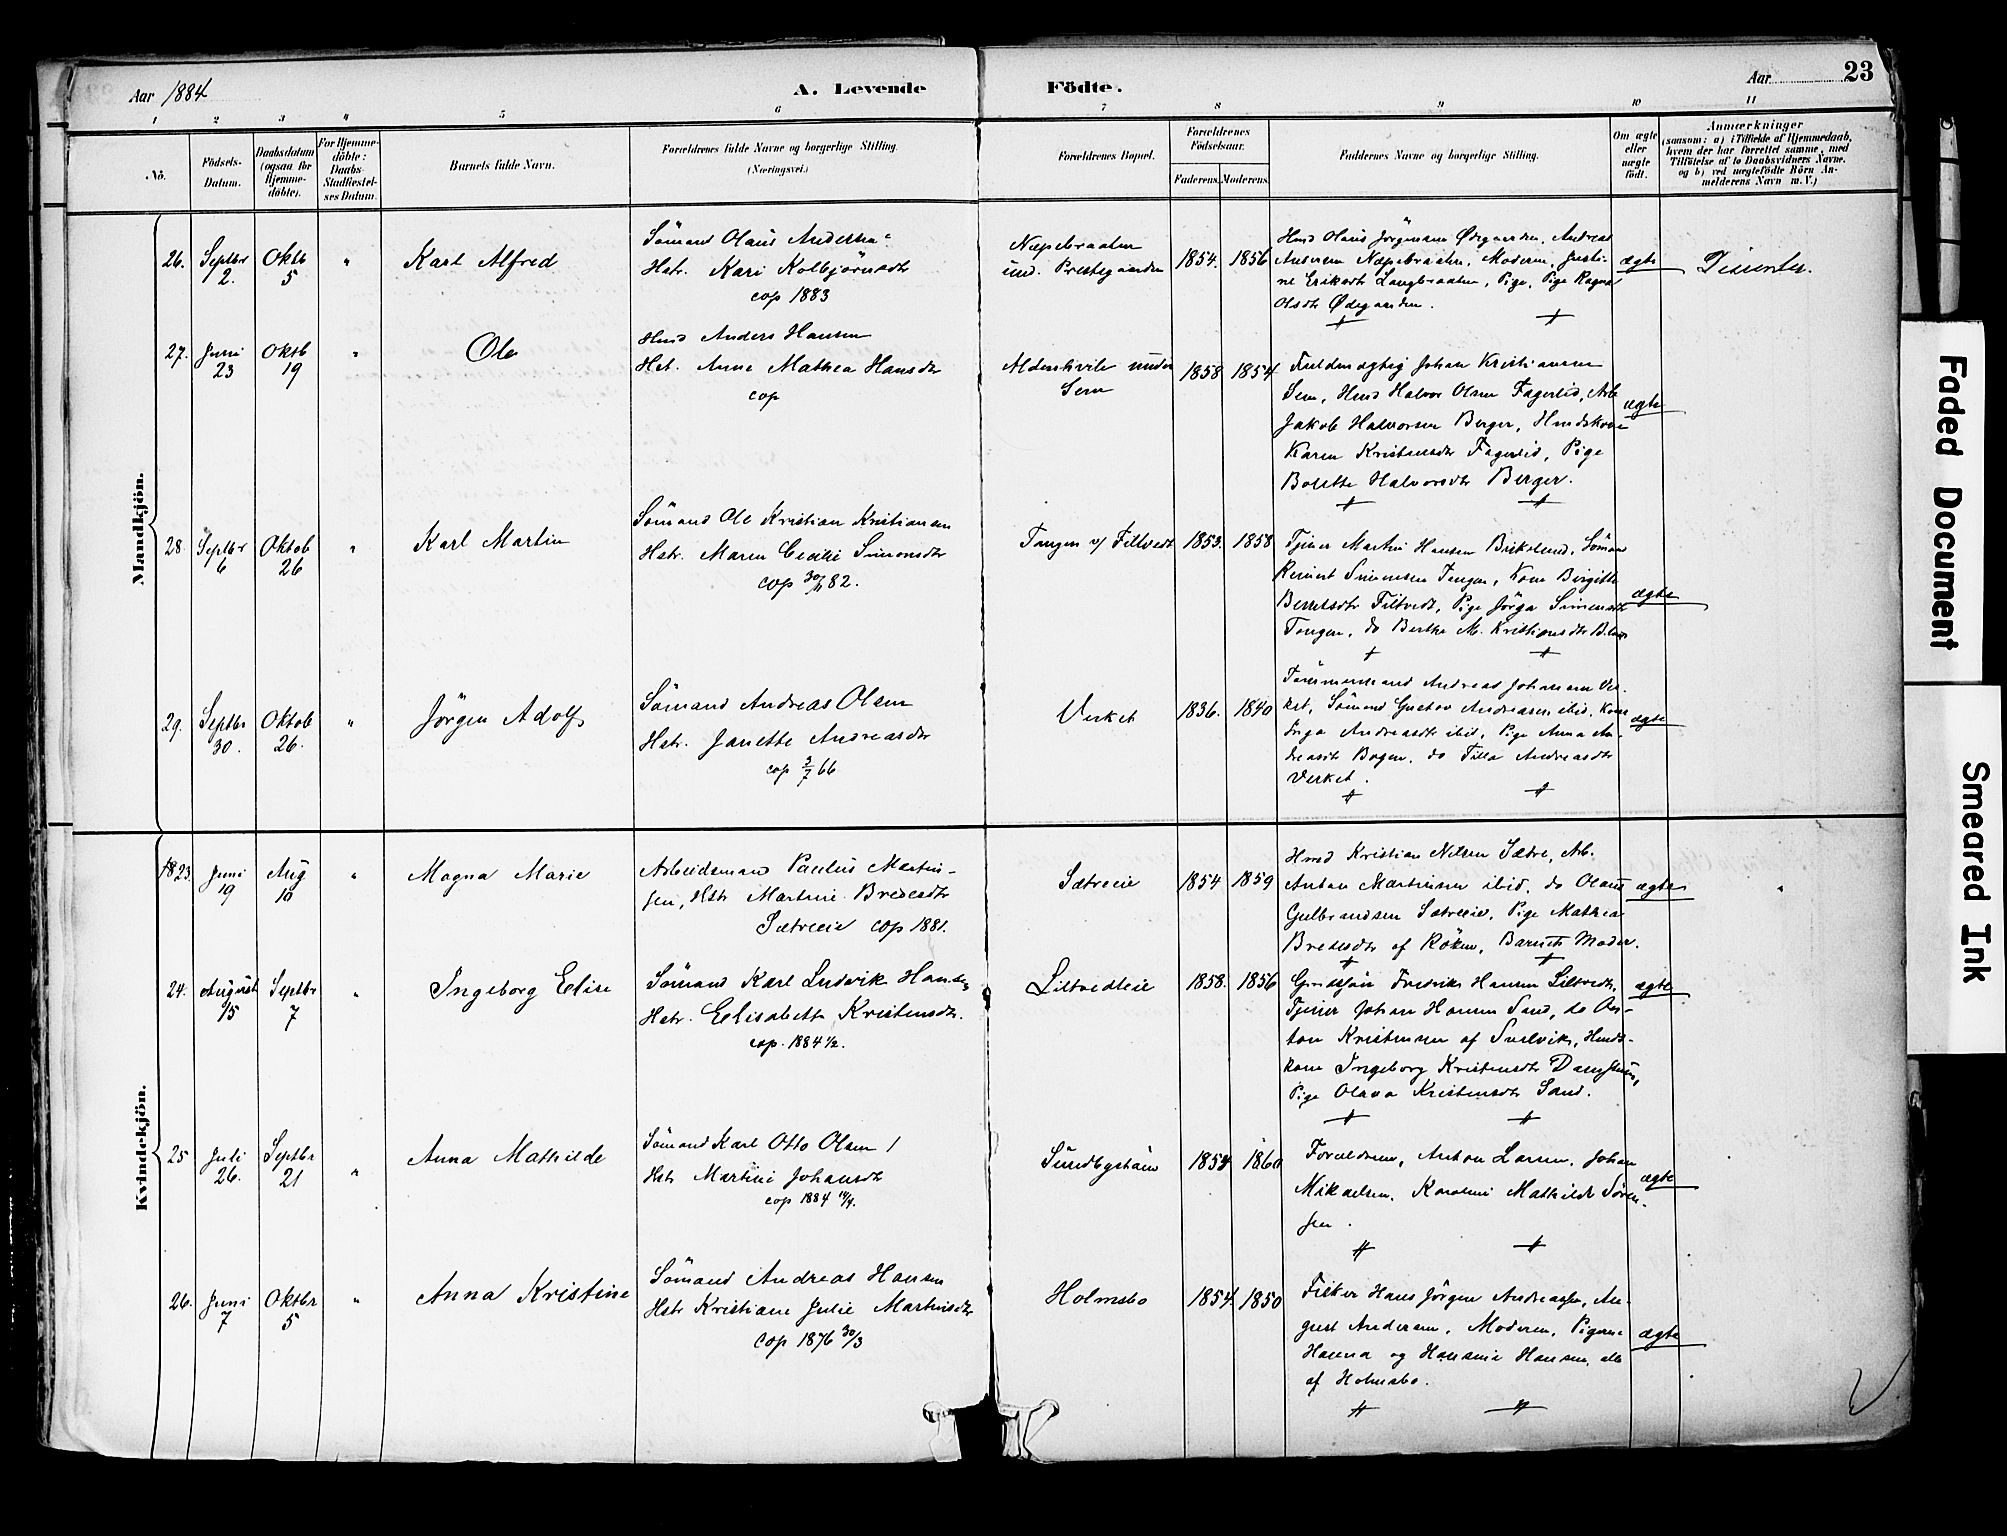 Aar 1884
A. Levende
Födte.
Aar
23
1 2 3 4 5 6 7 8 9 10 11
No.
Födsels-
Datum.
Daabsdatum
(ogsaa for
Hjemme-
döbte).
For Hjemme-
döbte:
Daabs-
Stadfæstel-
ses Datum.
Barnets fulde Navn.
Forældrenes fulde Navne og borgerlige Stilling.
(Næringsvei.)
Forældrenes Bopæl.
Forældrenes
Födselsaar.
Faderens. Moderens.
Faddernes Navne og borgerlige Stilling.
Om ægte
eller
uægte
födt.
Anmærkninger
(saasom: a) i Tilfælde af Hjemmedaab,
hvem der har forrettet samme, med
Tilföielse af to Daabsvidners Navne,
og b) ved uægtefödte Börn An-
melderens Navn m. V.)
Mandkjön.
26. Septbr
2.
Oktb
5
"
Karl Alfred
Sömand Olaus Anders
Hstr. Kari Kolbjörnsdtr
cop 1883
Næpebraaten
und. Prestegaarden
1854. 1856
Husd Olaus Jörgensen Ødegaarden, Andreas
Andersen Næpebraaten, Moderen, Justi-
ne Eriksdtr Langbraaten, Pige, Pige Ragna
Olsdtr Ødegaarden.
ægte
Dissenter.
27. Juni
23
Oktb
19
"
Ole
Husd Anders Hansen
Hst. Anne Mathea Hansdtr
cop
Alderhvile under
Sem
1858 1854
Fuldmægtig Johan Kristiansen
Sem, Husd Halvor Olsen Fagerlid, Arb
Jakob Halvorsen Berger, Husdskone
Karen Kristensdtr Fagerlid, Pige
Bolette Halvorsdtr Berger.
ægte
28. Septbr
6
Oktob
26
"
Karl Martin
Sömand Ole Kristian Kristiansen
Hstr. Maren Cecilie Simonsdtr
cop 30/11 82.
Tangen v/ Filtvedt
1853. 1858
Tjener Martin Hansen, Sömand
Simensen Tangen, Kone Birgitte
Berntsdtr Filtvedt, Pige Jörga Simensdtr
Tangen, do Berthe M. Kristiansdtr
ægte
29. Septbr
30.
Oktob
26.
"
Jörgen Adolf
Sömand Andreas Olsen
Hstr. Janette Andreasdtr
cop 3/7 66
Verket
1836. 1840
Tömmermand Andreas Johansen Ver-
ket, Sömand Gustav Andreasen ibid, Kone
Inga Andreasdtr ibid, Pige Anna An-
dreasdtr Bogen, do Tilla Andreasdtr
Verket.
ægte
Kvindekjön.
23. Juni
19
Aug
10
"
Magna Marie
Arbeidsmand Paulus Martin-
sen, Hstr Martine Bredesdtr
Sætreeie cop 1881.
Sætreeie
1854 1859
Husd Kristian Nilsen Sætre, Arb.
Anton Martinsen ibid, do Olaus
Gulbrandsen Sætreeie, Pige Mathea
Bredesdtr af Röken, Barnets Moder.
ægte
24. August
15
Septbr
7
"
Ingeborg Elise
Sömand Karl Ludvik Hansen
Hstr. Elisabeth Kristensdtr.
cop. 1884 1/2.
Liltvedteie
1858. 1856
Fredrik Hansen Liltvedt,
Tjener Johan Hansen Sand, do An-
ton Kristensen af Svelvik, Husds-
kone Ingeborg Kristensdtr
Pige Olava Kristensdtr Sand.
ægte
25 Juli
26.
Septbr
21
"
Anna Mathilde
Sömand Karl Otto Olsen
Hstr Martine Johansdtr
cop 1884 14/4.
Sundbyshaun
1854 1860
Forældrene, Anton Larsen, Johan
Mikaelsen, Karoline Mathilde Sören-
sen.
ægte
26. Juni
7
Oktbr
5
"
Anna Kristine
Sömand Andreas Hansen
Hstr Kristiane Julie Martinsdtr
cop 1876 30/3
Holmsbo
1854 1850
Fisker Hans Jörgen Andreassen, Au-
gust Andersen, Moderen, Pigerne
Hanna og Hansine Hansen, alle
af Holmsbo.
ægte
Faded Document
Smeared Ink